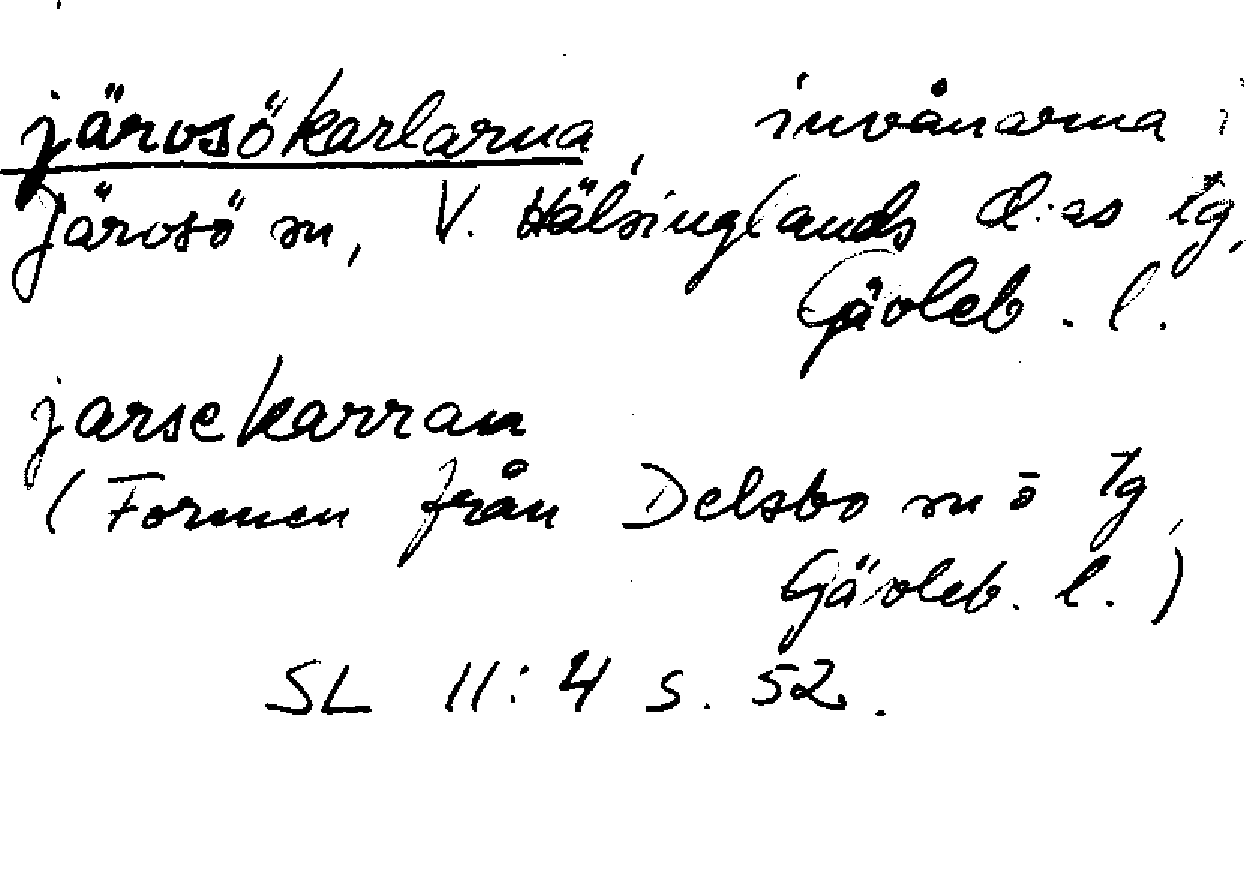 järvsökarlarna, invånarna i
Järvsö sn, V. Hälsinglands d:as tg,
Gävleb. l.
jarsekarran
(Formen från Delsbo sn o tg,
Gävleb. l.)
SL 11:4 s. 52.